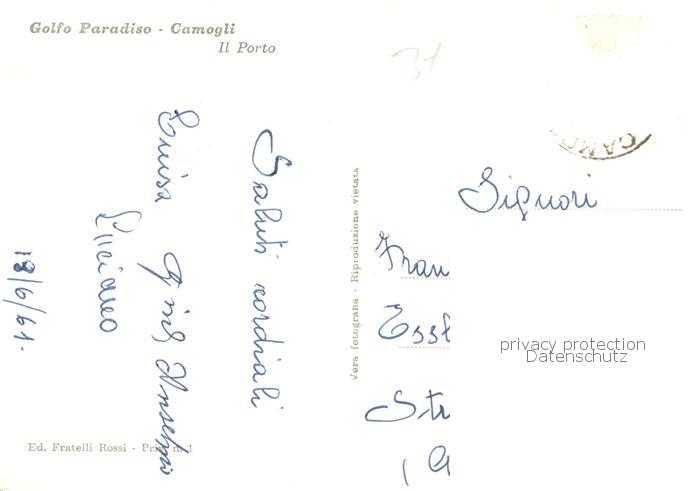 Golfo Paradiso - Camogli
Il Porto
Saluti cordiali
Luisa
Luciano
18/6/61.
Vera fotografia - Riproduzione vietata
CAMO
Signori
Fran
Str
privacy protection
Datenschutz
Ed. Fratelli Rossi